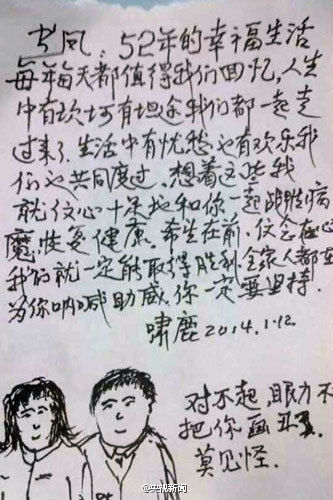 书凤：52年的幸福生活
每年每天都值得我们回忆，人生
中有坎坷有坦途我们都一起走
过来了．生活中有忧愁也有欢乐我
们也共同度过．想着这些我
就信心十足地和你一起战胜病
魔恢复健康．希望在前．信念在心
我们就一定能取得胜利全家人都在
为你呐喊助威你一定要坚持．
啸鹿2014.1.12.
对不起，眼力不
把你画丑了．
莫见怪．
@央视新闻